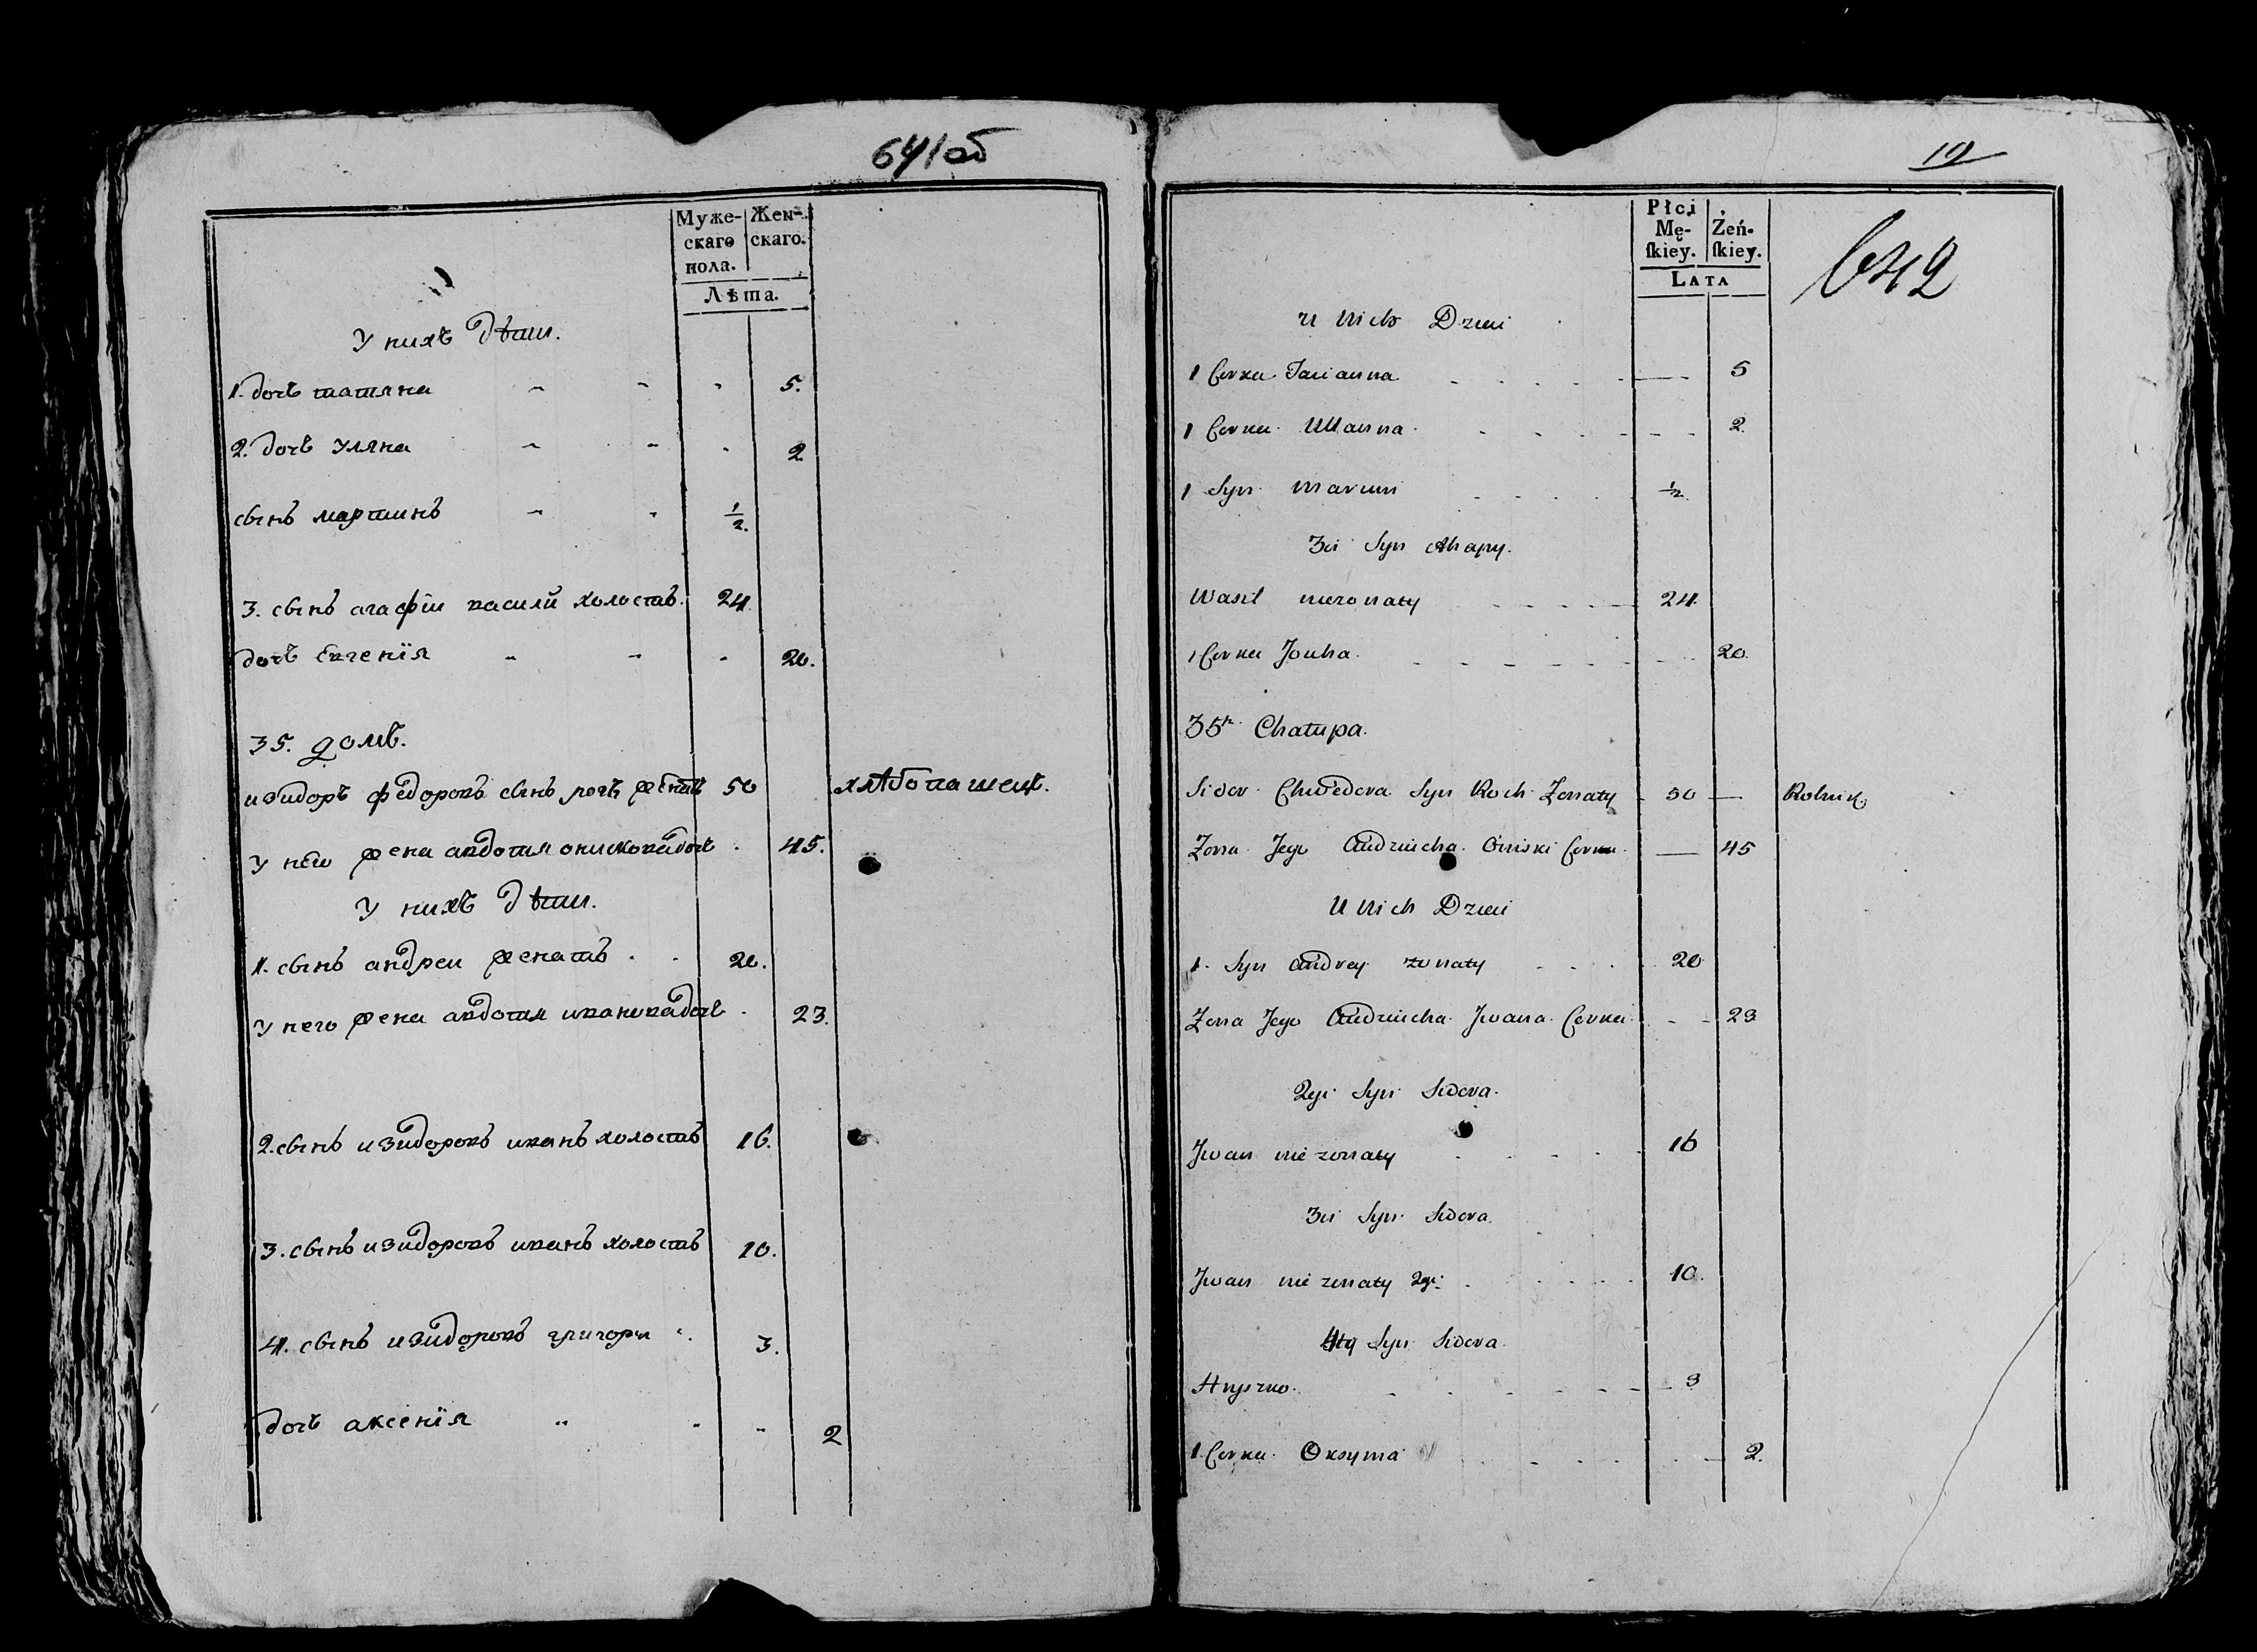 641об
Муже- Жен-
скаго скаго.
пола.
Лѣта.
У нихъ дѣти.
1. дочь татяна 5.
2. дочь Уляна 2
сынъ мартинъ 1/2.
3. сынъ агафіи василй холостъ. 24
дочь Евгенїя 20.
35. домъ.
изидоръ федоровъ сынъ женатъ 50 хлѣбопашецъ.
У него жена авдотия онисковадочь 45.
У нихъ дѣти.
1. сынъ андреи женатъ 20.
У него жена авдотия ивановадочь 23.
2. сынъ изидоровъ иванъ холостъ 16.
3. сынъ изидоровъ иванъ холостъ 10.
4. сынъ изидоровъ григори 3.
дочь аксенїя 2
19
Płci
Mę- Żeń-
ſkiey. ſkiey.
LATA
642
U Nich Dzieci
1 Corka Tacianna 5
1 Corka Ullanna 2
1 Syn Marcin 1/2
3ci Syn Ahapy.
Wasil niezonaty 24
1 Corka Jouha 20.
35ta Chatupa.
Sidor Chwedora Syn Roch Zonaty 50 Rolnik
Zona Jego Audziucha Oniski Corka 45
U Nich Dzieci
1. Syn Andrey zonaty 20
Zona Jego Audziucha Jwana Corka 23
2gi Syn Sidora.
Jwan nie zonaty 16
3ci Syn Sidora.
Jwan nie zonaty 2gi 10.
4ty Syn Sidora.
Hryszko 3
1. Corka Oksynia 2.